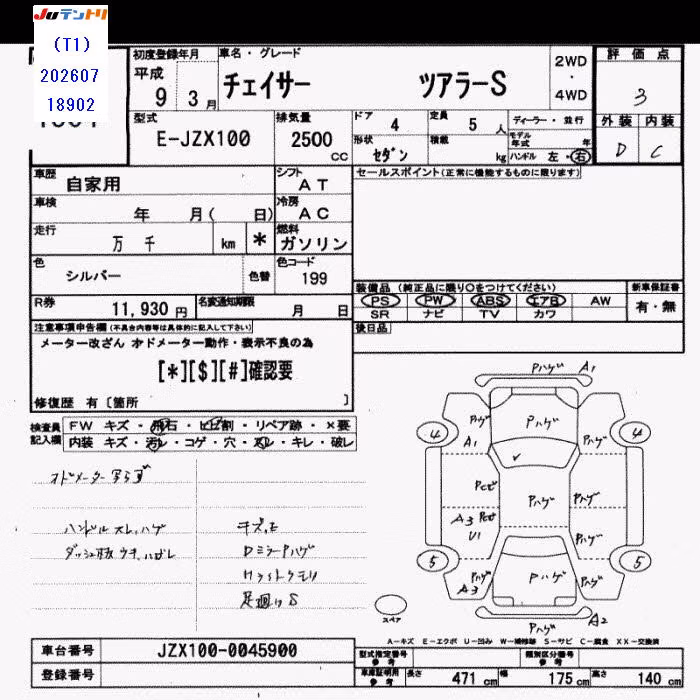 Juテントリ
(T1)
202607
18902
初度登録年月
平成
9 3 月
車名・グレード
チェイサー ツアラーS
2WD
・
4WD
評価点
3
外装 内装
D C
型式
E-JZX100
排気量
2500 cc
ドア 4
定員 5 人
ディーラー・並行
形状 セダン
積載 kg
モデル年式 年
ハンドル 左・右
車歴
自家用
シフト
AT
セールスポイント(正常に機能するものに限ります)
車検
年 月( 日)
冷房
AC
走行
万 千 km *
燃料
ガソリン
色
シルバー
色替
色コード
199
装備品 (純正品に限り○をつけてください)
新車保証書
PS PW ABS エアB AW
有・無
SR ナビ TV カワ
後日品
R券
11,930 円
名変通知期限
月 日
注意事項申告欄(不具合内容等は具体的に記入して下さい)
メーター改ざん オドメーター動作・表示不良の為
[*][$][#]確認要
修復歴 有〔箇所 〕
検査員
記入欄
FW キズ・飛石・ヒビ割・リペア跡・×要
内装 キズ・汚レ・コゲ・穴・スレ・キレ・破レ
オドメーター
ハンドルスレ、ハゲ
キズ、E
DミラーPハゲ
ライトクモリ
足廻りS
Pハゲ A1
Pハゲ Pハゲ Pハゲ
4 A1 4
Pハゲ Pハゲ
A3
U1
5 5
Pハゲ Pハゲ Pハゲ
A3
Pハゲ A2
スペア
A-キズ E-エクボ U-凹み W-補修跡 S-サビ C-腐食 XX-交換済
車台番号
JZX100-0045900
登録番号
型式指定番号
参考
類別区分番号
参考
車庫証明用
参考
長さ 471 cm
幅 175 cm
高さ 140 cm